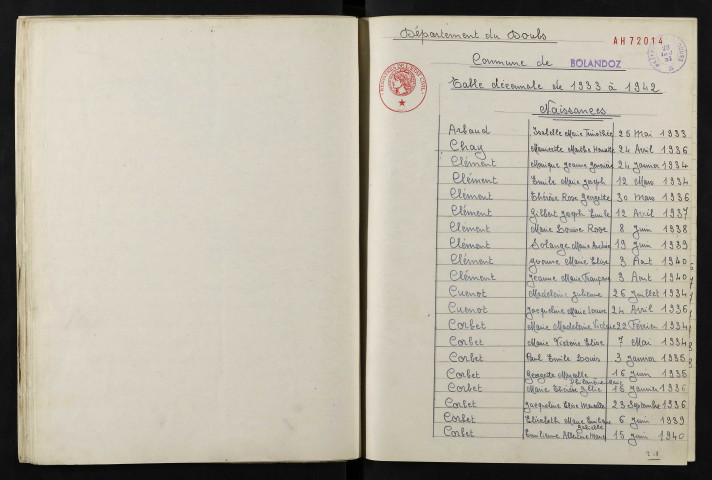 Département du Doubs
AH72014
Commune de BOLANDOZ
Table décennale de 1933 à 1942
Naissances
Arbaud Isabelle Marie Timothée 25 Mai 1933
Chay Mauricette Marthe 24 Avril 1936
Clément Monique Jeanne 24 Janvier 1934
Clément Emile Marie Joseph 12 Mars 1934
Clément Thérèse Rose Georgette 30 Mars 1936
Clément Gilbert Joseph Emile 12 Avril 1937
Clément Marie Louise Rose 8 Juin 1938
Clément Solange Marie 19 Juin 1939
Clément Yvonne Marie Elise 3 Aout 1940
Clément Jeanne Marie Françoise 3 Aout 1940
Cuenot Madeleine Julienne 26 Juillet 1934
Cuenot Jacqueline Marie Louise 24 Avril 1936
Corbet Marie Madeleine Victoire 22 Février 1934
Corbet Marie Victoire Elise 7 Mai 1934
Corbet Paul Emile Louis 3 Janvier 1935
Corbet Georgette Marcelle 16 Juin 1935
Corbet Marie Thérèse 15 Janvier 1936
Corbet Jacqueline Elise 23 Septembre 1936
Corbet Elisabeth Marie 6 Juin 1939
Corbet Emilienne Marie 15 Juin 1940